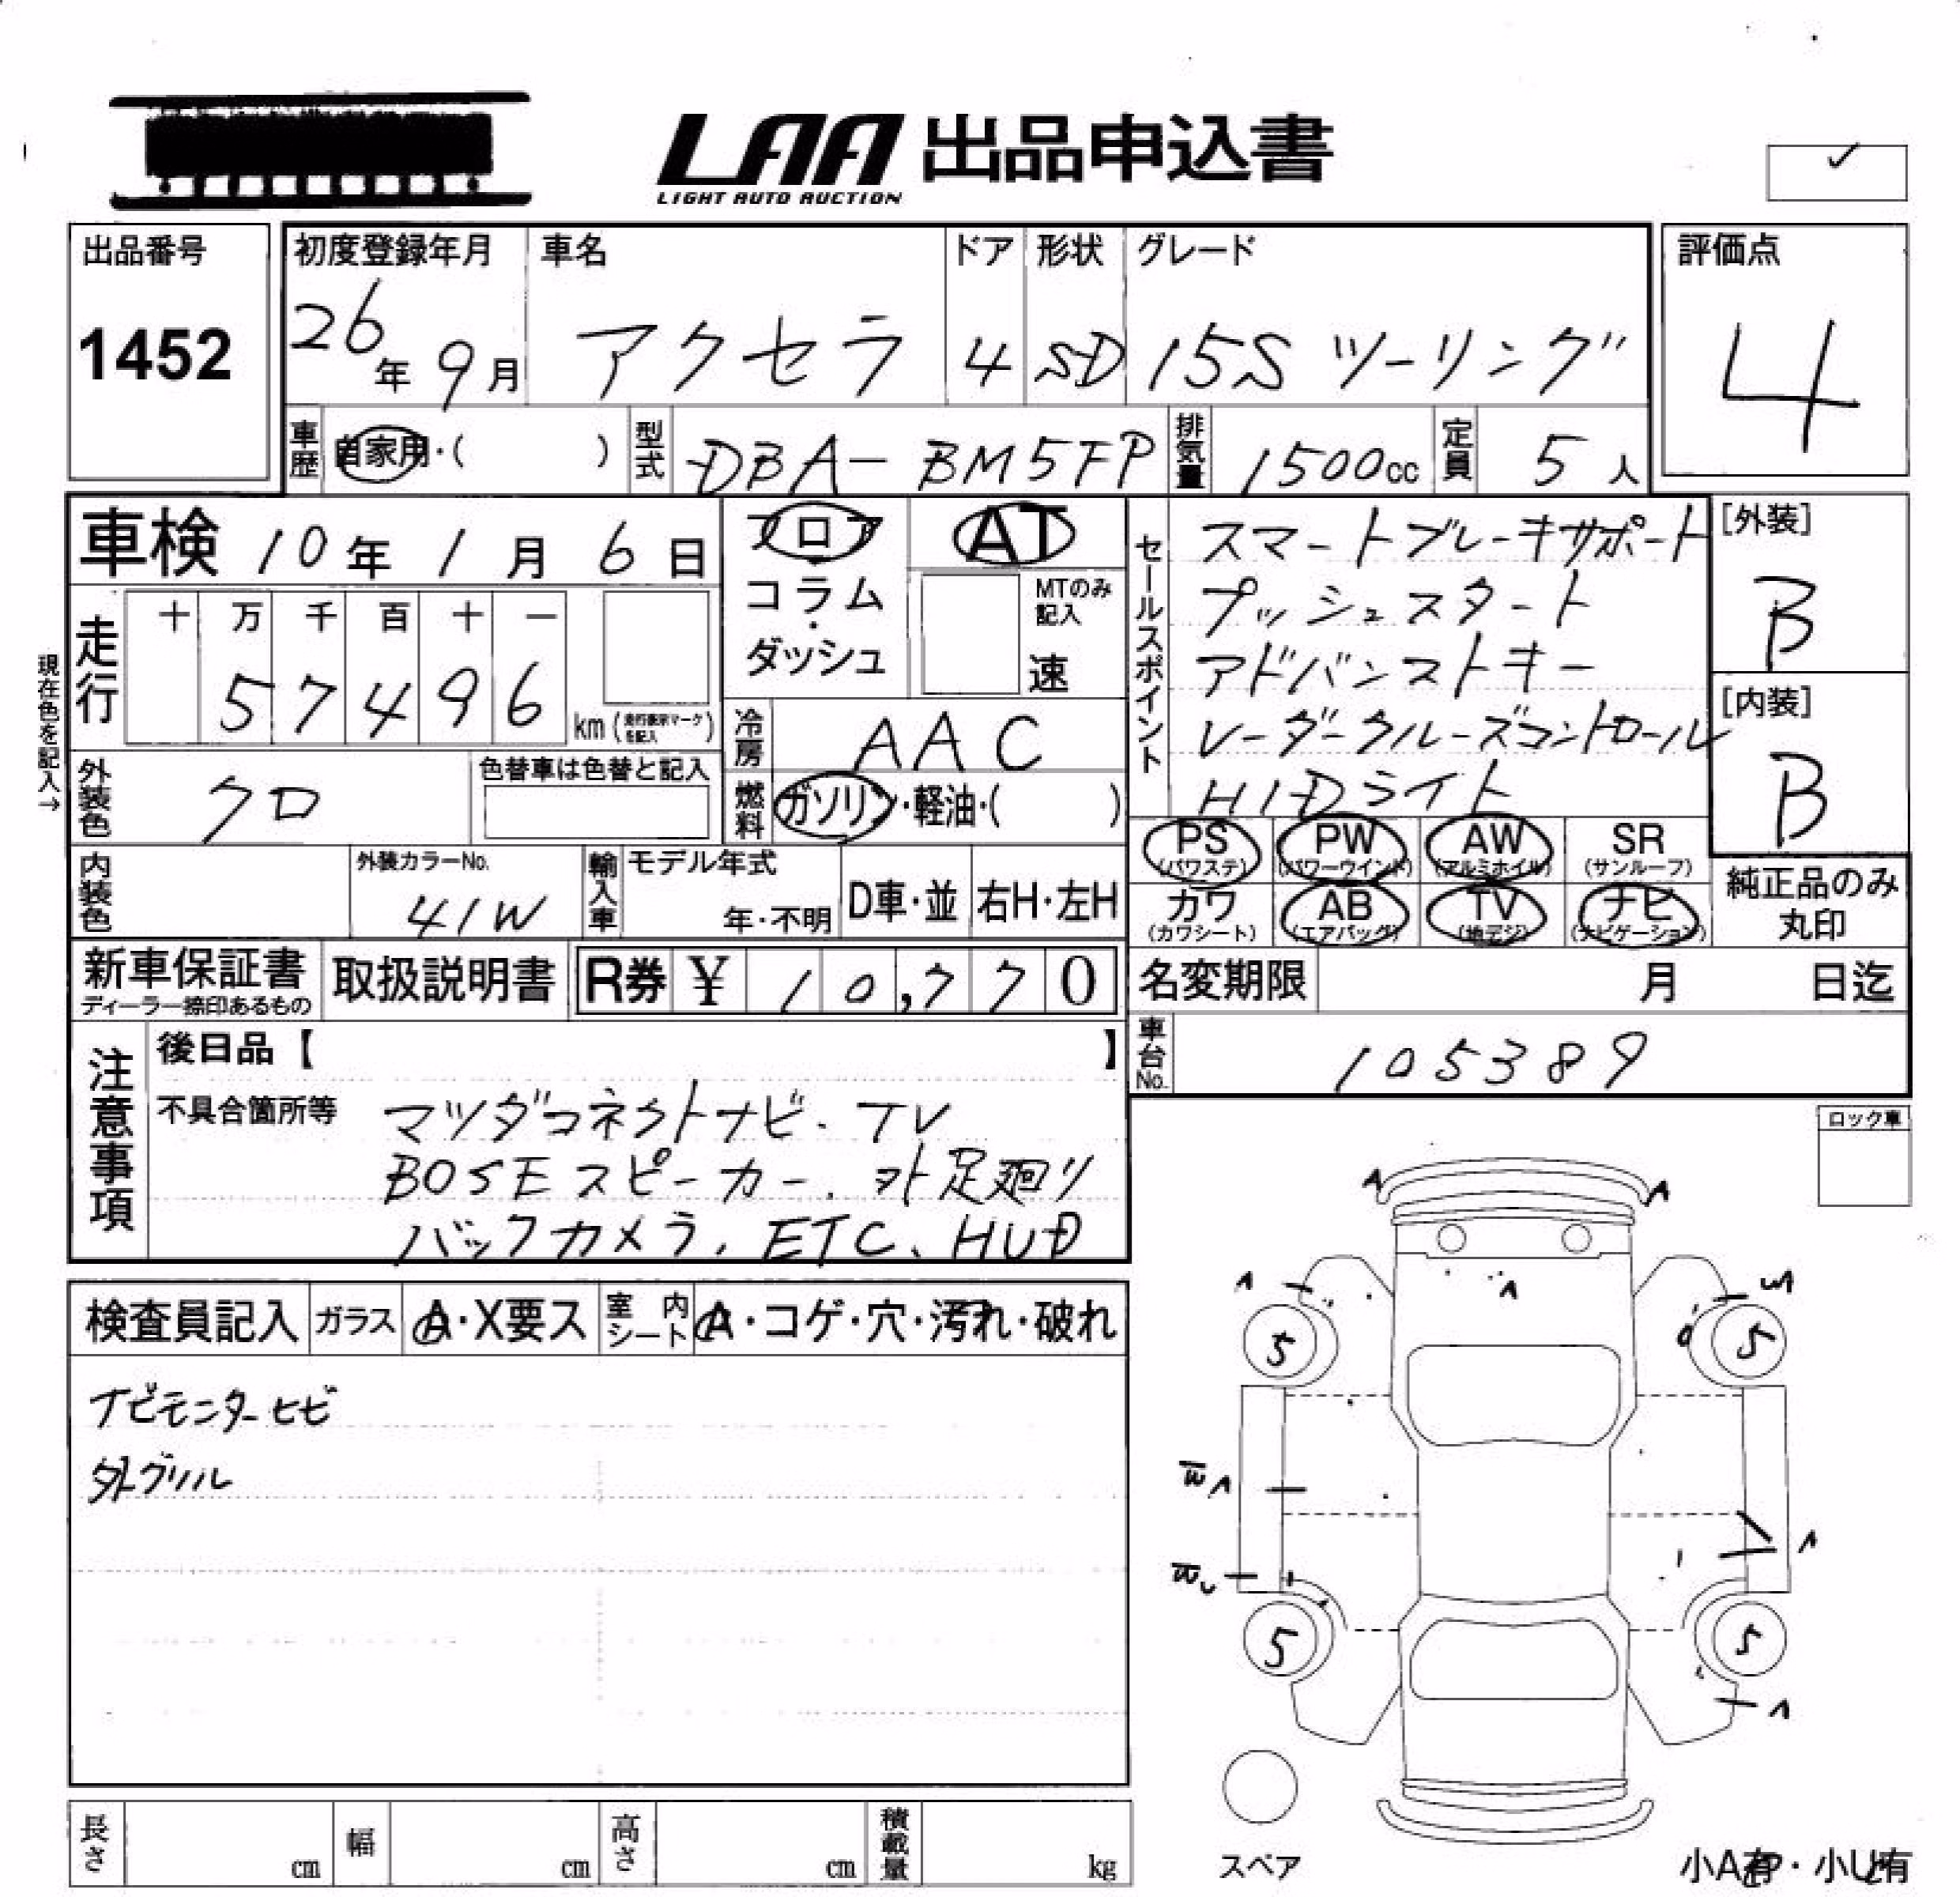 LAA 出品申込書
LIGHT AUTO AUCTION
出品番号
1452
初度登録年月
26年 9月
車名
アクセラ
ドア
4
形状
SD
グレード
15S ツーリング
評価点
4
車歴 自家用・( )
型式 DBA-BM5FP
排気量 1500cc
定員 5人
車検 10年 1月 6日
フロア
コラム
・
ダッシュ
AT
MTのみ記入
速
セールスポイント
スマートブレーキサポート
プッシュスタート
アドバンストキー
レーダークルーズコントロール
HIDライト
[外装]
B
[内装]
B
現在色を記入→
走行
十 万 千 百 十 一
5 7 4 9 6
km(走行表示マークを記入)
冷房 AAC
燃料 ガソリン・軽油・( )
外装色 クロ
色替車は色替と記入
内装色
外装カラーNo.
41W
輸入車
モデル年式
年・不明
D車・並
右H・左H
PS (パワステ)
PW (パワーウインド)
AW (アルミホイル)
SR (サンルーフ)
カワ (カワシート)
AB (エアバッグ)
TV (地デジ)
ナビ (ナビゲーション)
純正品のみ
丸印
新車保証書
ディーラー捺印あるもの
取扱説明書
R券 ¥ 10,770
名変期限 月 日迄
車台No. 105389
注意事項
後日品【 】
不具合箇所等
マツダコネクトナビ. TV
BOSEスピーカー. 外足廻り
バックカメラ. ETC、HUD
ロック車
検査員記入
ガラス A・X要ス
室内シート A・コゲ・穴・汚れ・破れ
ナビモニターヒビ
外グリル
A A
A A W
5 5
W A
A
W U
5 5
A
スペア
長さ cm
幅 cm
高さ cm
積載量 kg
小A有・小U有